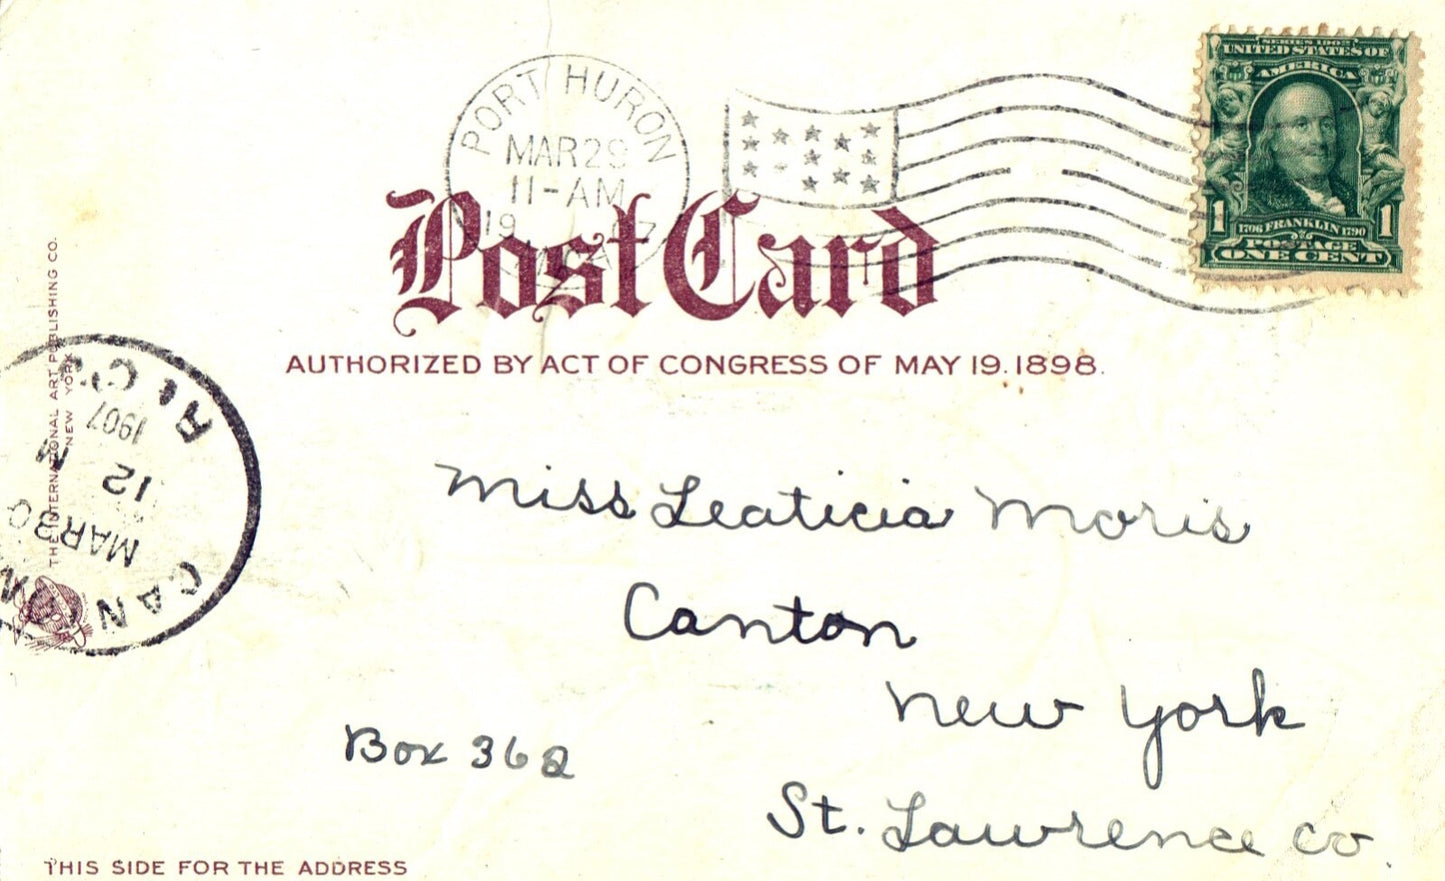 PORT HURON
MAR 29
11-AM
19 07
SERIES 1902
UNITED STATES OF
AMERICA
1706 FRANKLIN 1790
1 1
POSTAGE
ONE CENT
Post Card
AUTHORIZED BY ACT OF CONGRESS OF MAY 19.1898.
THE INTERNATIONAL ART PUBLISHING CO.
NEW YORK
CANTON
MAR 30
12
1907
Miss Leaticia Moris
Canton
New York
Box 362
St. Lawrence Co.
THIS SIDE FOR THE ADDRESS